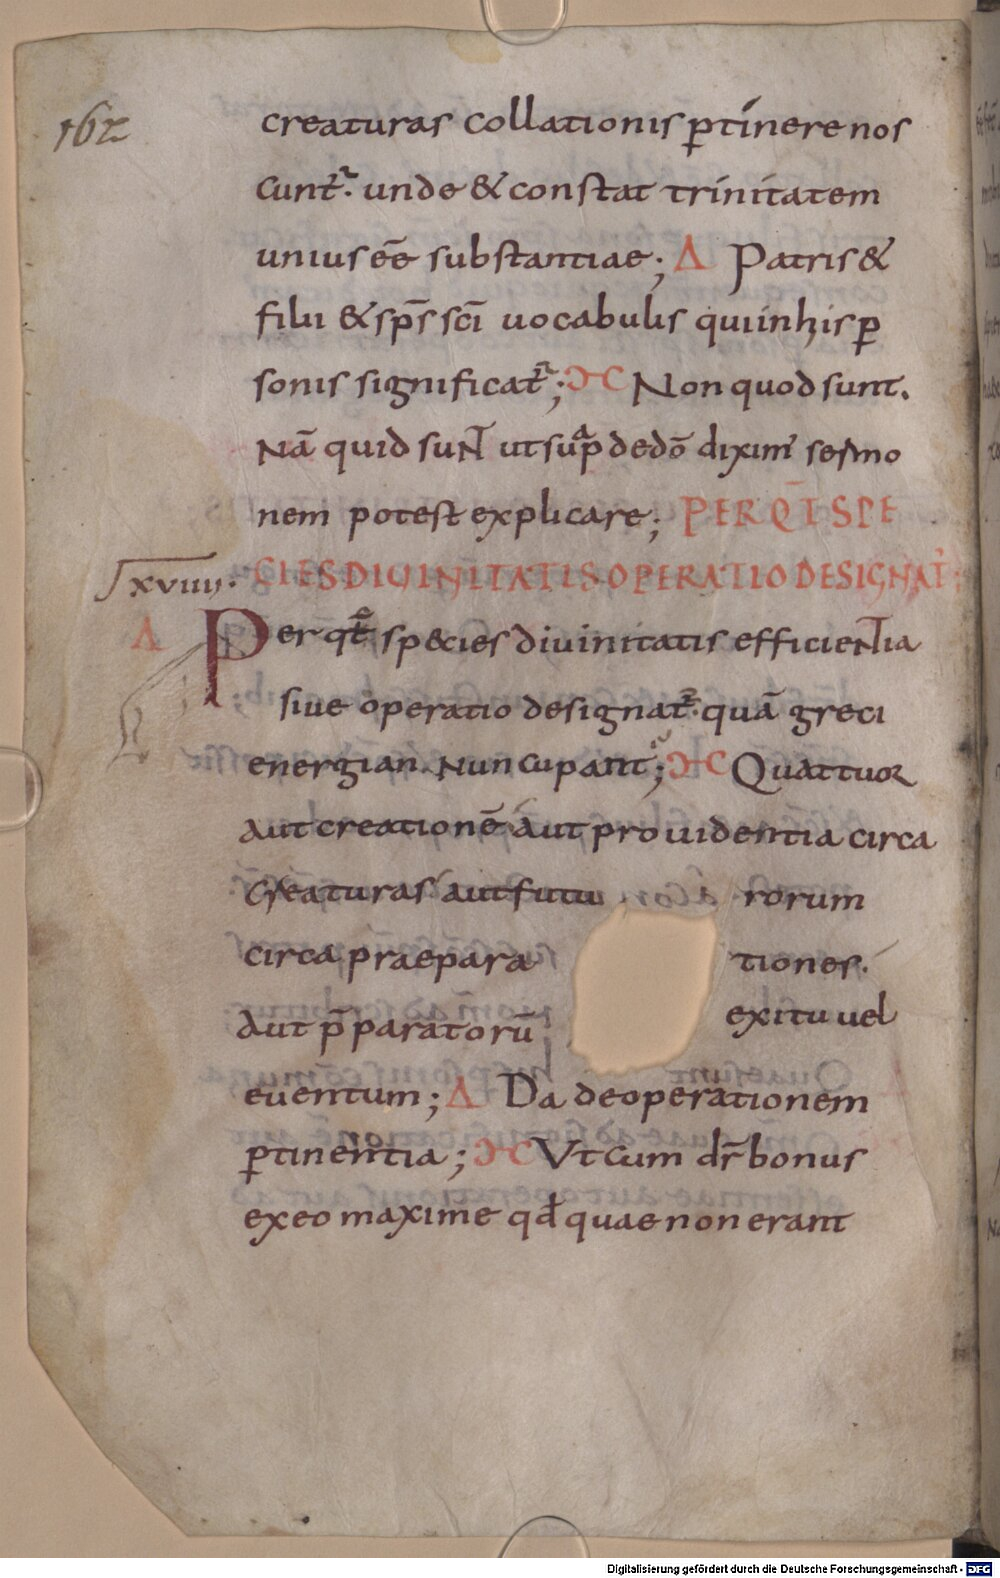 162
creaturas collationis ꝑtinere nos
cunt᷑. unde & constat trinitatem
unius eē substantiae; Δ Patris &
filii & sp̄s sc̄i uocabulis quiinhis ꝑ
sonis significat᷑; ƆC Non quod sunt.
Nā quid sunt ut sup̄ dedō dixim' sermo
nem potest explicare; PER QT̄ SPE
CIES DIUINITATIS OPERATIO DESIGNAT᷑;
xviiii.
Δ Per qt̄ species diuinitatis efficientia
siue operatio designat᷑. quā greci
energian nuncupant; ƆC Quattuor
aut creationē aut prouidentia circa
creaturas aut futu rorum
circa praepara tiones.
aut p̄paratorū exitu uel
euentum; Δ Da deoperationem
ꝑtinentia; ƆC Ut cum dr̄ bonus
exeo maxime qđ quae non erant
Digitalisierung gefördert durch die Deutsche Forschungsgemeinschaft - DFG